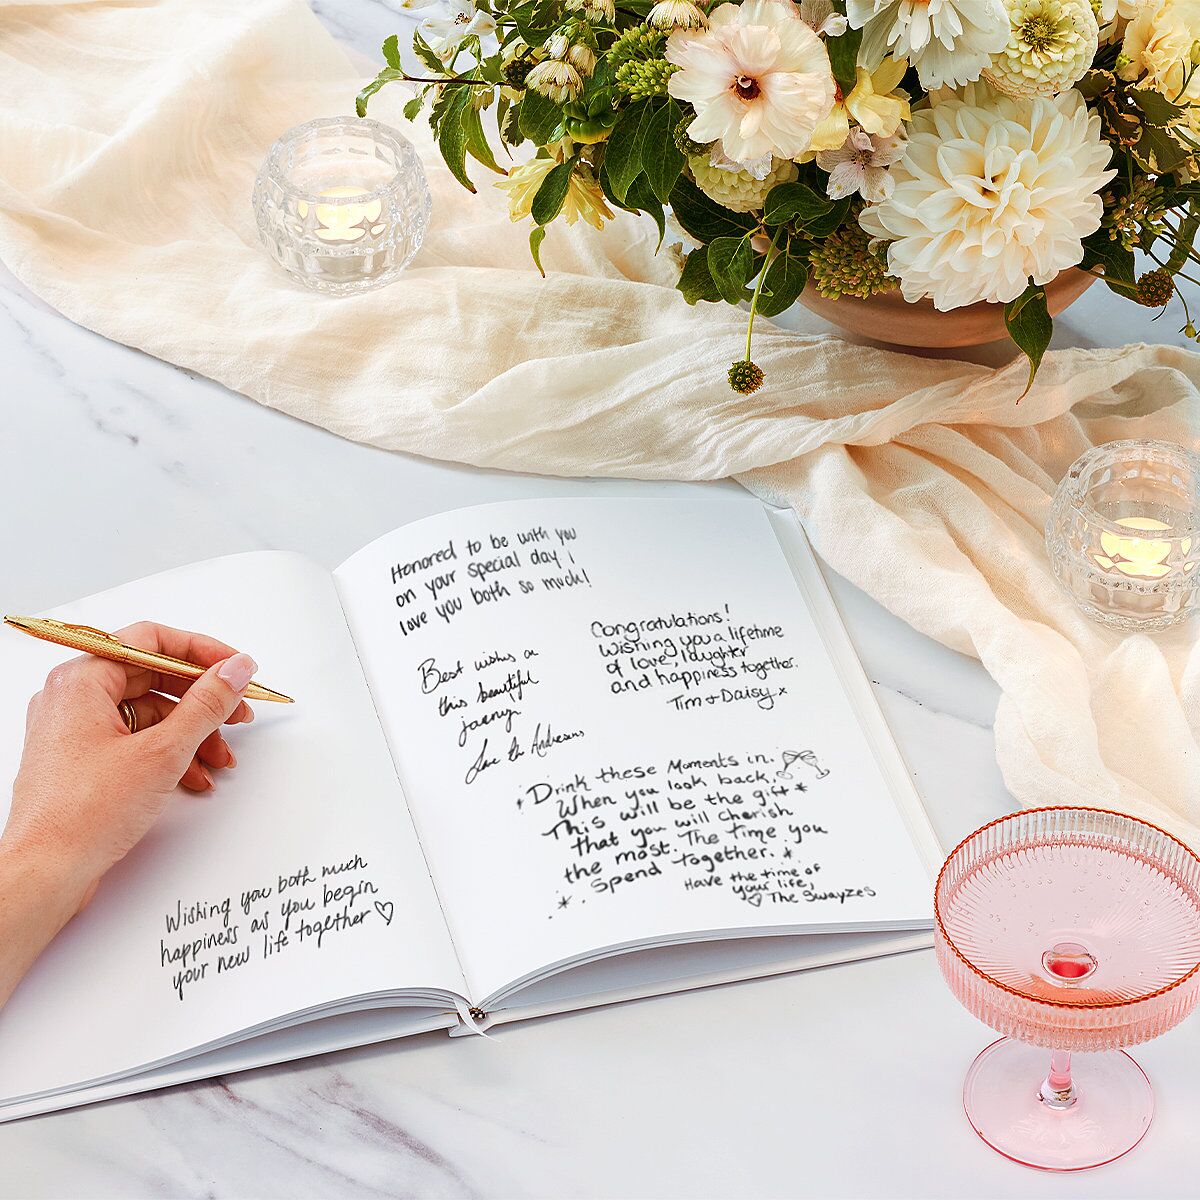 Wishing you both much
happiness as you begin
your new life together
Honored to be with you
on your special day i
love you both so much!
Congratulations!
Wishing you a lifetime
of love, laughter
and happiness together.
Tim + Daisy x
Best wishes on
this beautiful
journey
Love
Drink these Moments in.
When you look back,
This will be the gift
that you will cherish
the most. The time you
spend together.
Have the time of
your life,
The Swayzes